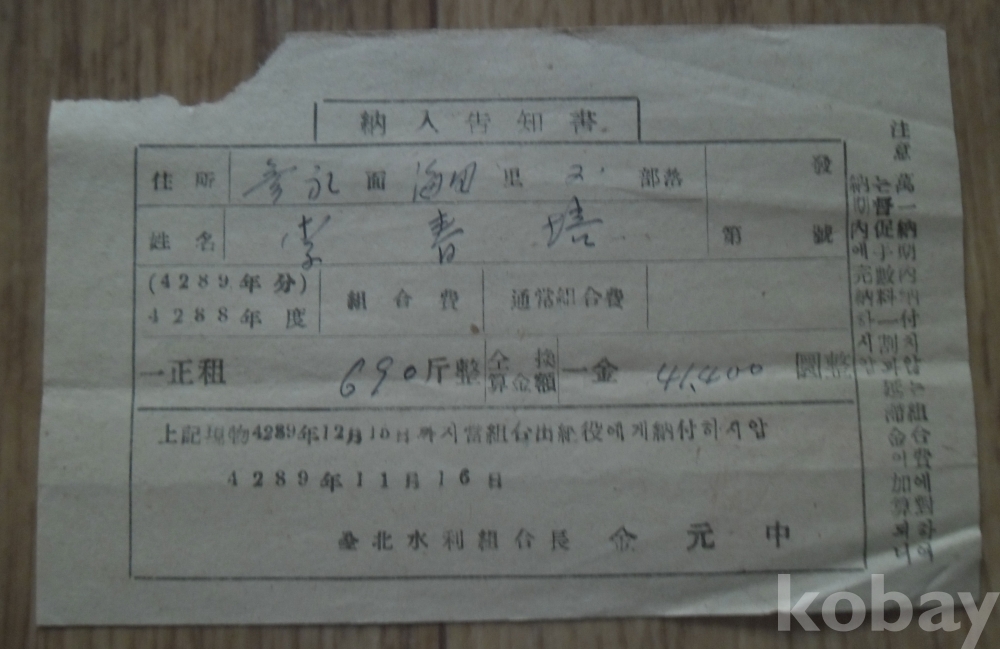 納入告知書
住所 參礼面 海田里 2. 部落 發
姓名 李春培 第 號
(4289年分)
4288年度 組合費 通常組合費
一正租 690斤整 仝換算金額 一金 41,400 圓整
上記現物4289年12月10日까지當組合出納役에게納付하시압
4289年11月16日
全北水利組合長 金元中
注意
萬一納期內納付치압는組合費에對하여
는督促手數料一割과延滯金이加算되니
納期內에完納하시압
kobay